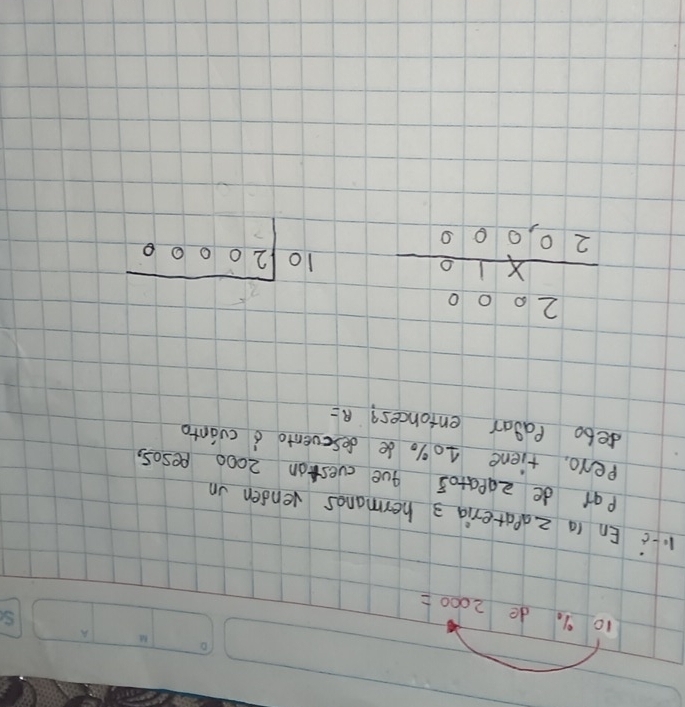 10 % de 2000 =
1.-¿ En la zapateria 3 hermanos venden un
Par de zapatos que cuestan 2000 pesos,
Pero, tiene 10% de descuento ¿ cuánto
debo Pagar entonces? R=
2000
X 10
20,000
10 20000